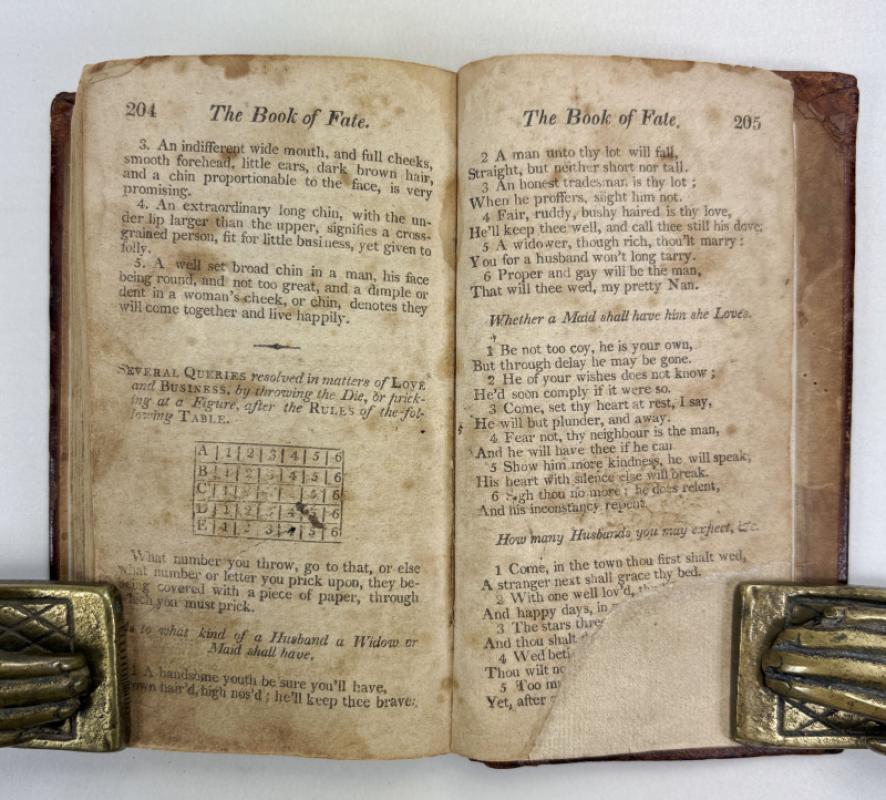 204 The Book of Fate.
3. An indifferent wide mouth, and full cheeks,
smooth forehead, little ears, dark brown hair,
and a chin proportionable to the face, is very
promising.
4. An extraordinary long chin, with the un-
der lip larger than the upper, signifies a cross-
grained person, fit for little business, yet given to
folly.
5. A well set broad chin in a man, his face
being round, and not too great, and a dimple or
dent in a woman's cheek, or chin, denotes they
will come together and live happily.
SEVERAL QUERIES resolved in matters of LOVE
and BUSINESS, by throwing the Die, or prick-
ing at a Figure, after the RULES of the fol-
lowing TABLE.
A 1 2 3 4 5 6
B 1 2 3 4 5 6
C 1 5 6
D 1 2 3 5 6
E 1 2 3 4 5 6
What number you throw, go to that, or else
what number or letter you prick upon, they be-
ing covered with a piece of paper, through
which you must prick.
to what kind of a Husband a Widow or
Maid shall have.
1 A handsome youth be sure you'll have,
hair'd, high nos'd; he'll keep thee brave.
The Book of Fate. 205
2 A man unto thy lot will fall,
Straight, but neither short nor tall.
3 An honest tradesman is thy lot;
When he proffers, slight him not.
4 Fair, ruddy, bushy haired is thy love,
He'll keep thee well, and call thee still his dove.
5 A widower, though rich, thou'lt marry:
You for a husband won't long tarry.
6 Proper and gay will be the man,
That will thee wed, my pretty Nan.
Whether a Maid shall have him she Loves.
1 Be not too coy, he is your own,
But through delay he may be gone.
2 He of your wishes does not know;
He'd soon comply if it were so.
3 Come, set thy heart at rest, I say,
He will but plunder, and away.
4 Fear not, thy neighbour is the man,
And he will have thee if he can
5 Show him more kindness, he will speak,
His heart with silence else will break.
6 Sigh thou no more; he does relent,
And his inconstancy repent.
How many Husbands you may expect, &c.
1 Come, in the town thou first shalt wed,
A stranger next shall grace thy bed.
2 With one well lov'd,
And happy days, in
3 The stars
And thou shalt
4 Wed
Thou wilt
5 Too
Yet, after